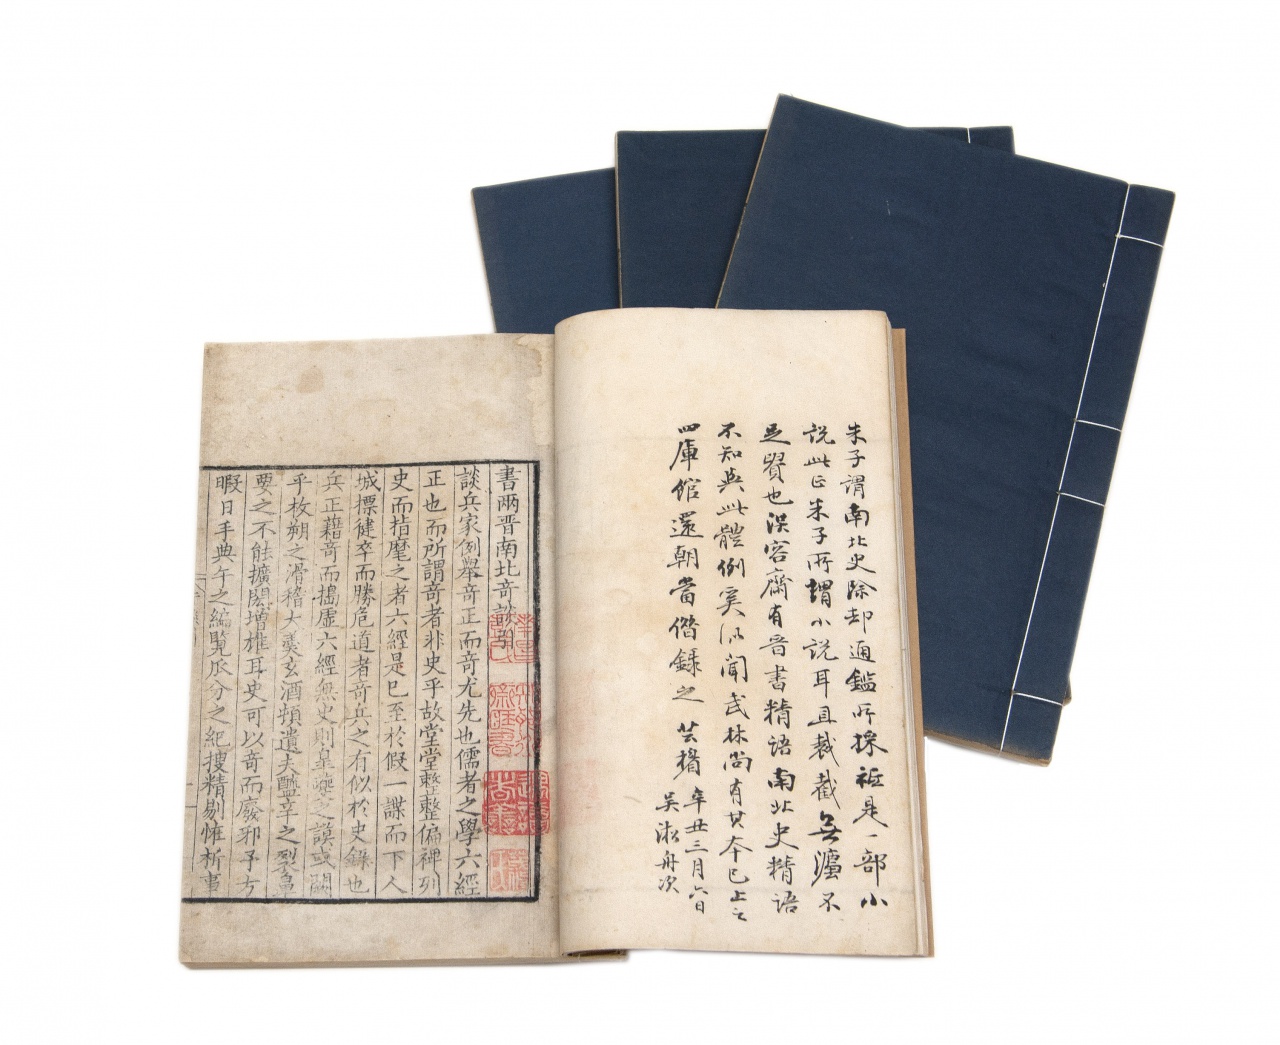 朱子謂南北史除却通鑑所採祗是一部小
說此正朱子所謂小說耳且裁截無灋不
足貿也洪容齋有晉書精語南北史精語
不知與此體例奚似聞武林尚有其本已上之
四庫館還朝當借錄之 芸楣 辛丑三月六日
吳淞舟次
書兩晉南北奇談引
談兵家例舉奇正而奇尤先也儒者之學六經
正也而所謂奇者非史乎故堂堂整整偏裨列
史而指麾之者六經是已至於假一諜而下人
城摽健卒而勝危道者奇兵之有似於史錄也
兵正藉奇而搗虛六經無史則皇 之謨或闕
乎枚朔之滑稽大羹玄酒頓遺夫醯辛之裂鼻
要之不能擴閎增樵耳史可以奇而廢邪予方
暇日手典午之編覽瓜分之紀搜精剔怪析事